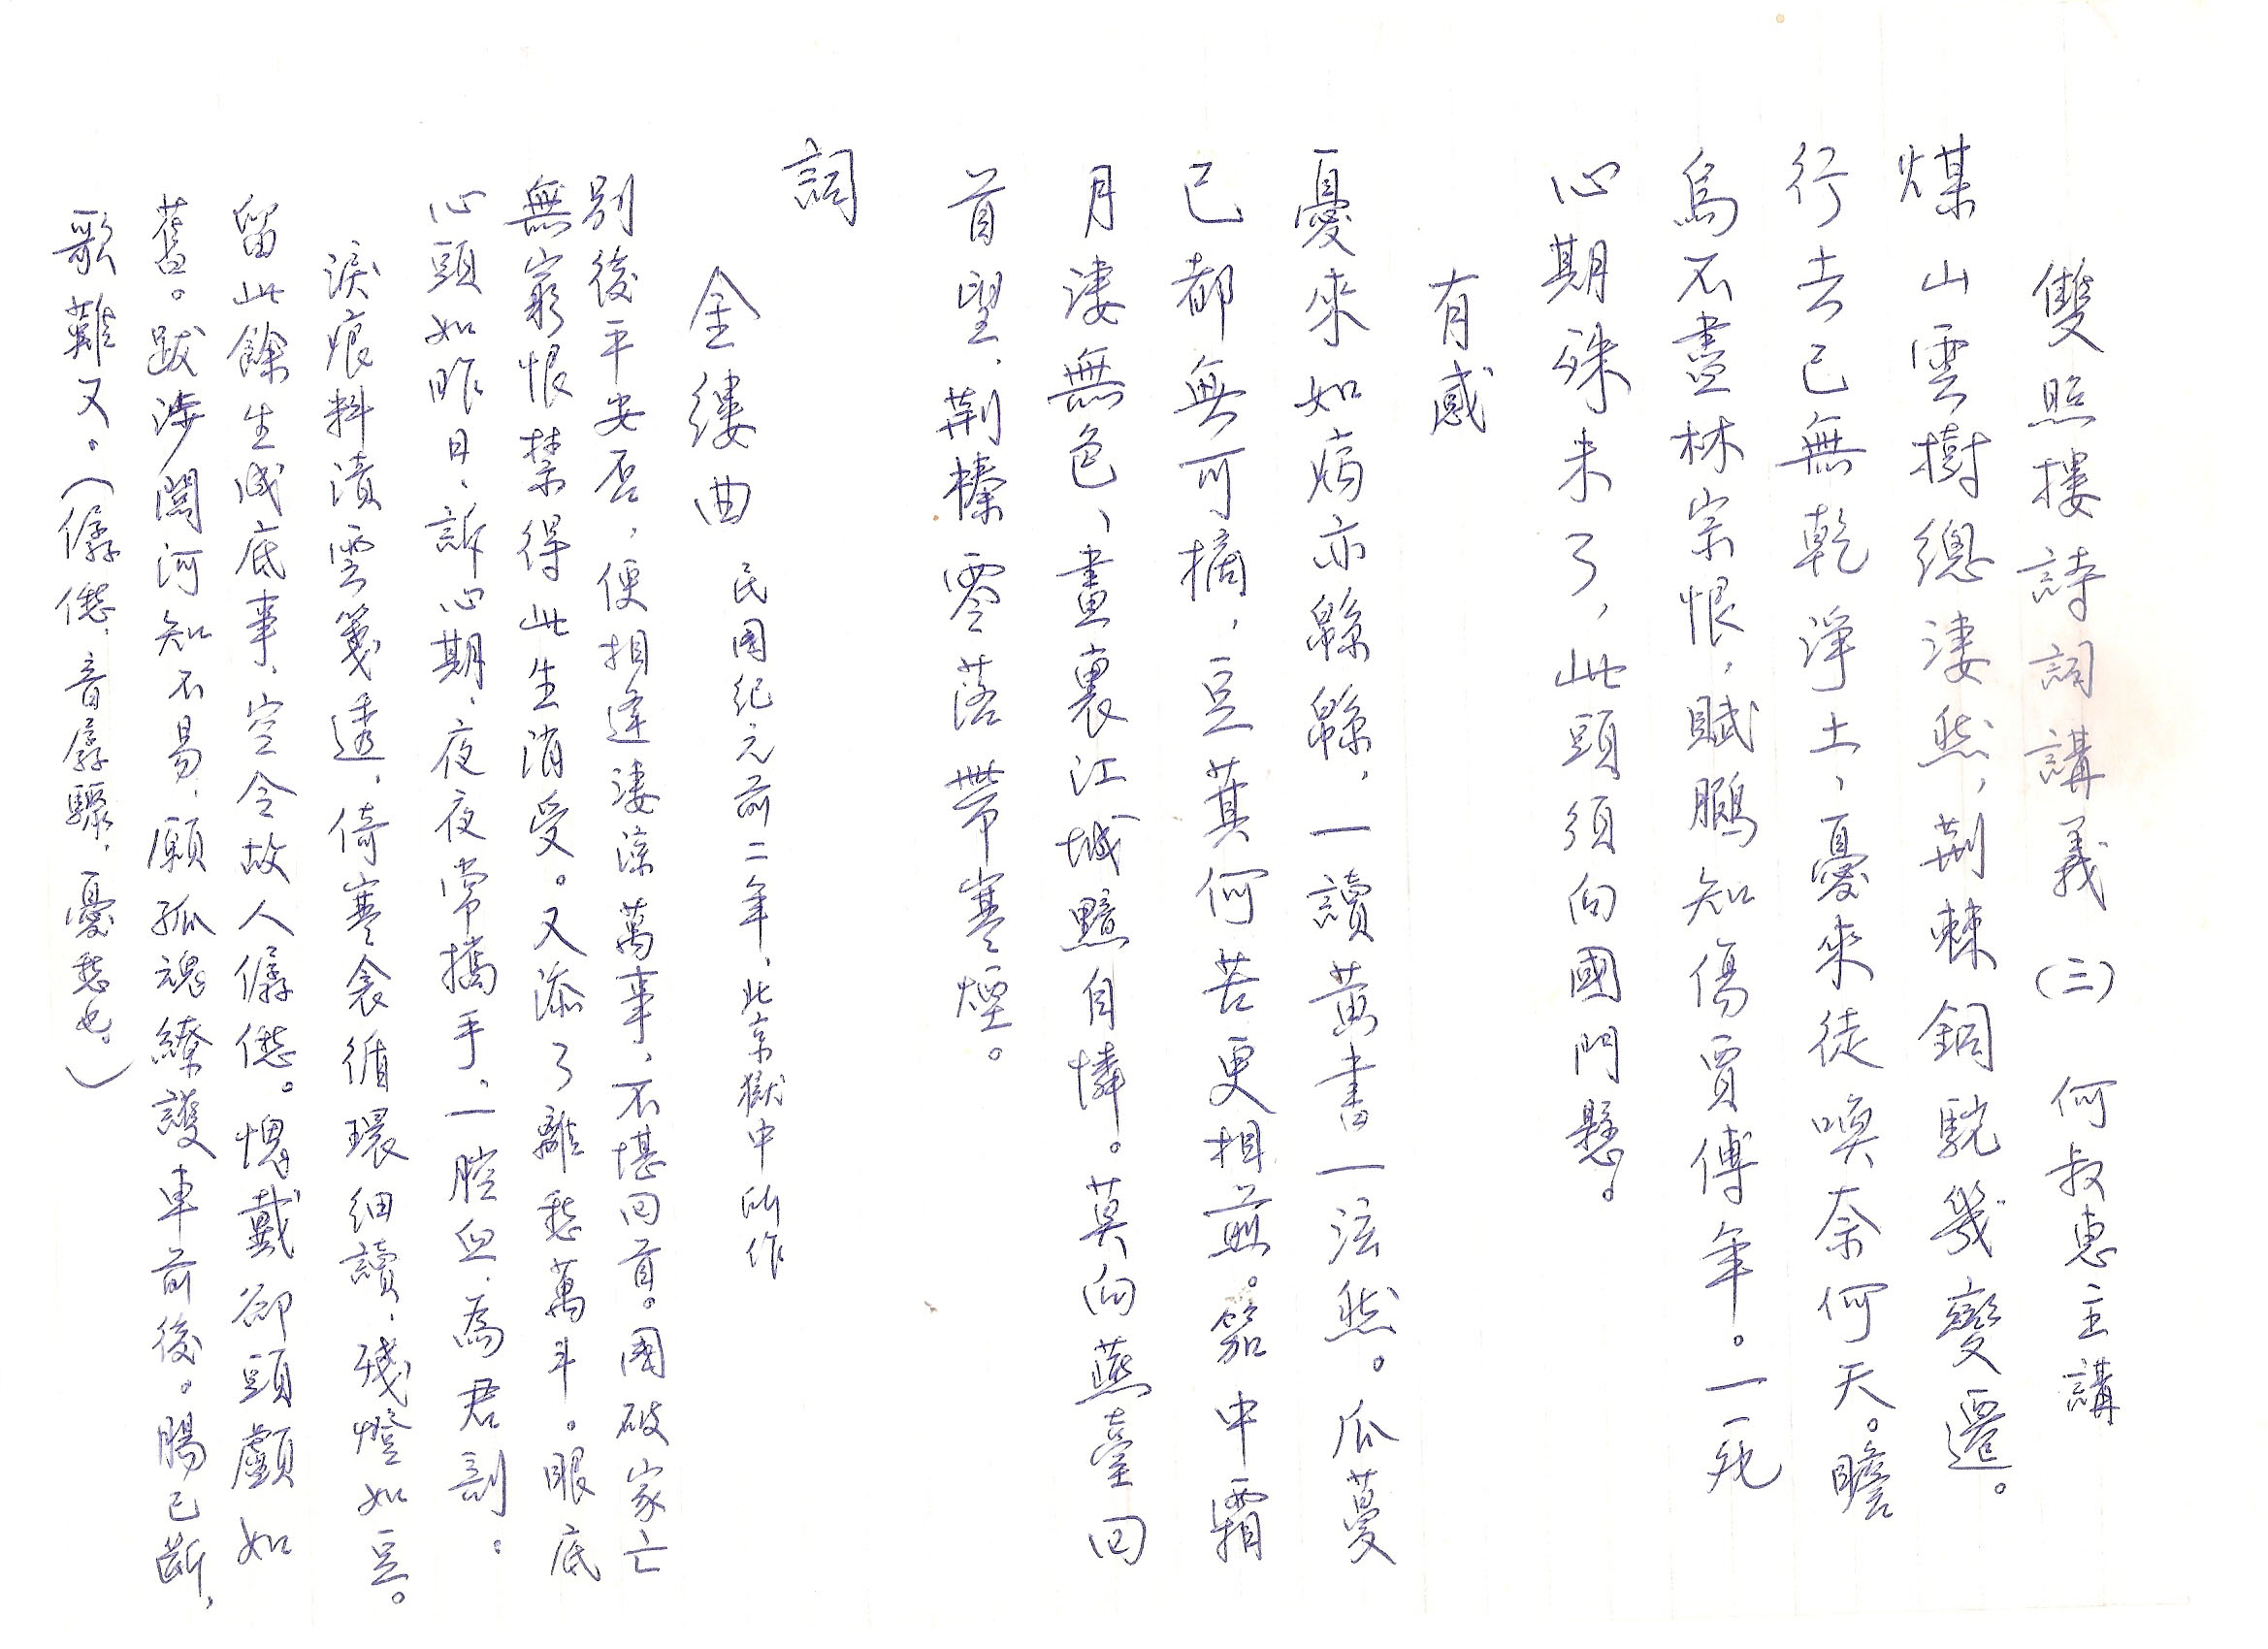 雙照樓詩詞講義(三)　何叔惠主講
煤山雲樹總淒然，荆棘銅駝幾變遷。
行去已無乾淨土，憂來徒喚奈何天。瞻
烏不盡林宗恨，賦鵩知傷賈傅年。一死
心期殊未了，此頭須向國門懸。
有感
憂來如病亦緜緜，一讀黃書一泫然。瓜蔓
已都無可摘，豆萁何苦更相煎。笳中霜
月淒無色，畫裏江城黯自憐。莫向燕臺回
首望，荆榛零落帶寒煙。
詞
金縷曲　民國紀元前二年，北京獄中所作
別後平安否，便相逢淒涼萬事，不堪回首。國破家亡
無窮恨禁得此生消受。又添了離愁萬斗。眼底
心頭如昨日，訴心期，夜夜常攜手，一腔血，為君剖。
淚痕料漬雲箋透，倚寒衾循環細讀，殘燈如豆。
留此餘生成底事，空令故人僝僽。愧戴卻頭顱如
舊。跋涉關河知不易，願孤魂繚護車前後。腸已斷，
歌難又。(僝僽，音孱驟，憂愁也。)